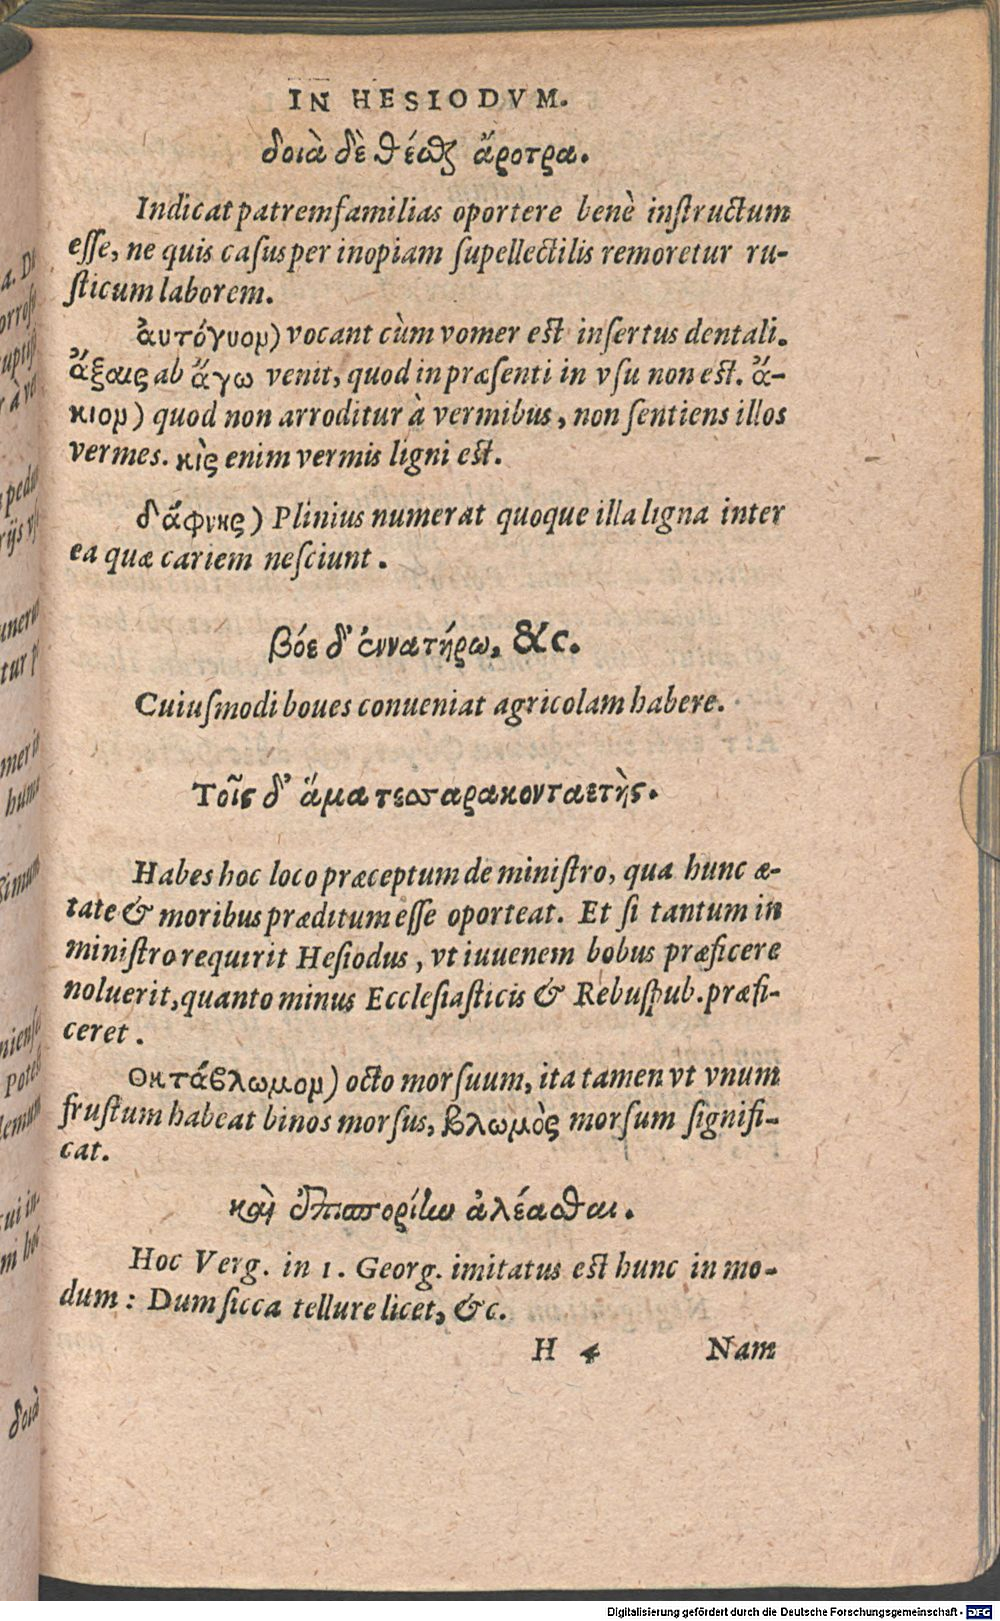 IN HESIODVM.
δοιὰ δὲ θέσθαι ἄροτρα.
Indicat patremfamilias oportere benè inſtructum
eſſe, ne quis caſus per inopiam ſupellectilis remoretur ru-
ſticum laborem.
ἀυτόγυον) vocant cùm vomer est inſertus dentali.
ἄξαις ab ἄγω venit, quod in præſenti in vſu non est. ἄ-
κιον) quod non arroditur à vermibus, non ſentiens illos
vermes. κὶς enim vermis ligni est.
δάφνης) Plinius numerat quoque illa ligna inter
ea quæ cariem neſciunt.
βόε δ' ἐνναετήρω, &c.
Cuiuſmodi boues conueniat agricolam habere.
Τοῖς δ' ἅμα τεσσαρακονταετὴς.
Habes hoc loco præceptum de miniſtro, qua hunc æ-
tate & moribus præditum eſſe oporteat. Et ſi tantum in
miniſtro requirit Heſiodus, vt iuuenem bobus præficere
noluerit, quanto minus Eccleſiaſticis & Rebuſpub. præfi-
ceret.
Οκτάβλωμον) octo morſuum, ita tamen vt vnum
fruſtum habeat binos morſus, βλωμὸς morſum ſignifi-
cat.
καὶ ἐπισπορίην ἀλέασθαι.
Hoc Verg. in 1. Georg. imitatus est hunc in mo-
dum: Dum ſicca tellure licet, &c.
H 4 Nam
Digitalisierung gefördert durch die Deutsche Forschungsgemeinschaft - DFG